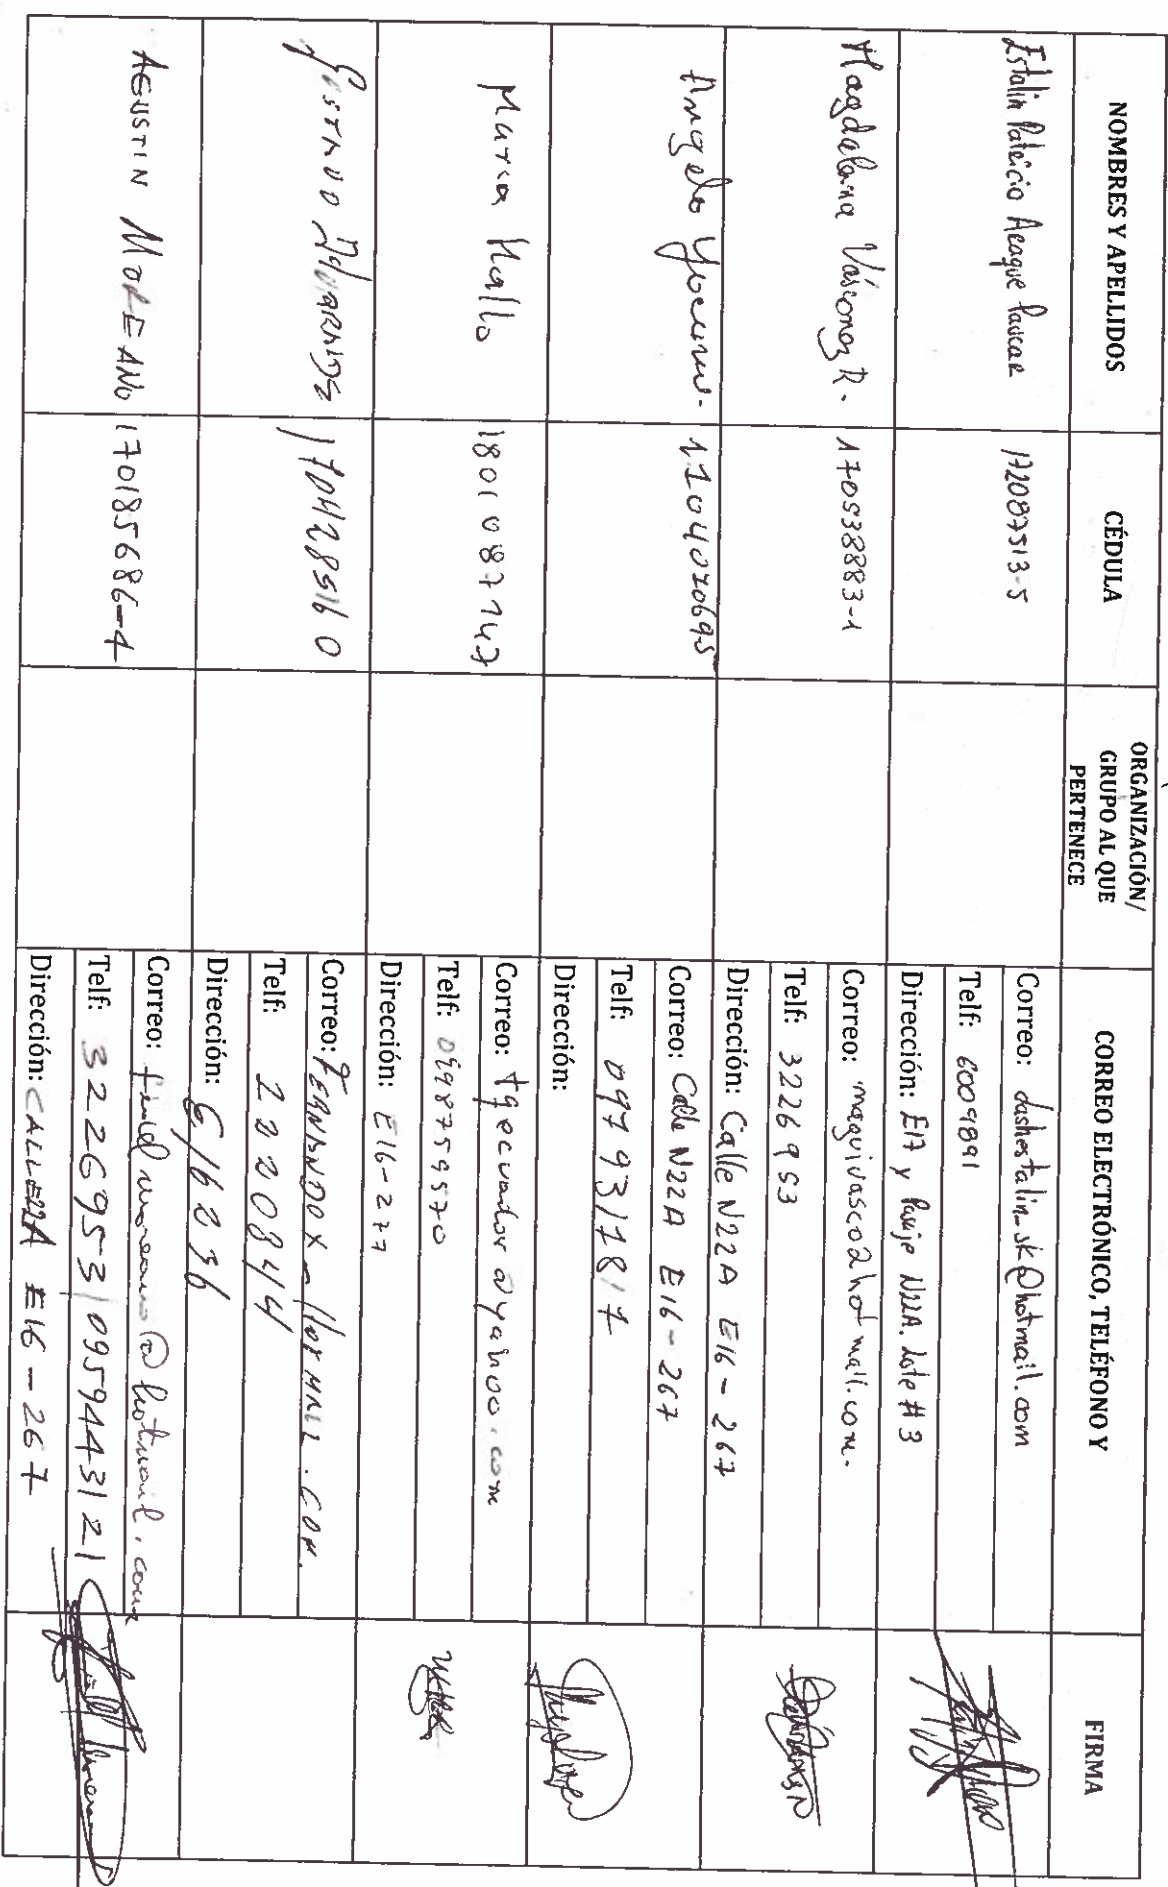 NOMBRES Y APELLIDOS CÉDULA ORGANIZACIÓN/ GRUPO AL QUE PERTENECE CORREO ELECTRÓNICO, TELÉFONO Y FIRMA
Estalin Patricio 172087513-5
Correo: dashestalin_sk@hotmail.com
Telf: 6009891
Dirección: E17 y Pasaje N22A. Lote #3
Magdalena Vásconez R. 170538883-1
Correo: maguivasco2hotmail.com.
Telf: 3226953
Dirección: Calle N22A E16-267
Angelo 1104020695
Correo: Calle N22A E16-267
Telf: 0979317817
Dirección:
Maria Hallo 1801087147
Correo: tqecuador@yahoo.com
Telf: 0998759570
Dirección: E16-277
1704285160
Correo:
Telf: 2220844
Dirección: E/16236
AGUSTIN MOREANO 170185686-4
Correo: @hotmail.com
Telf: 3226953/0959443121
Dirección: CALLE22A E16-267